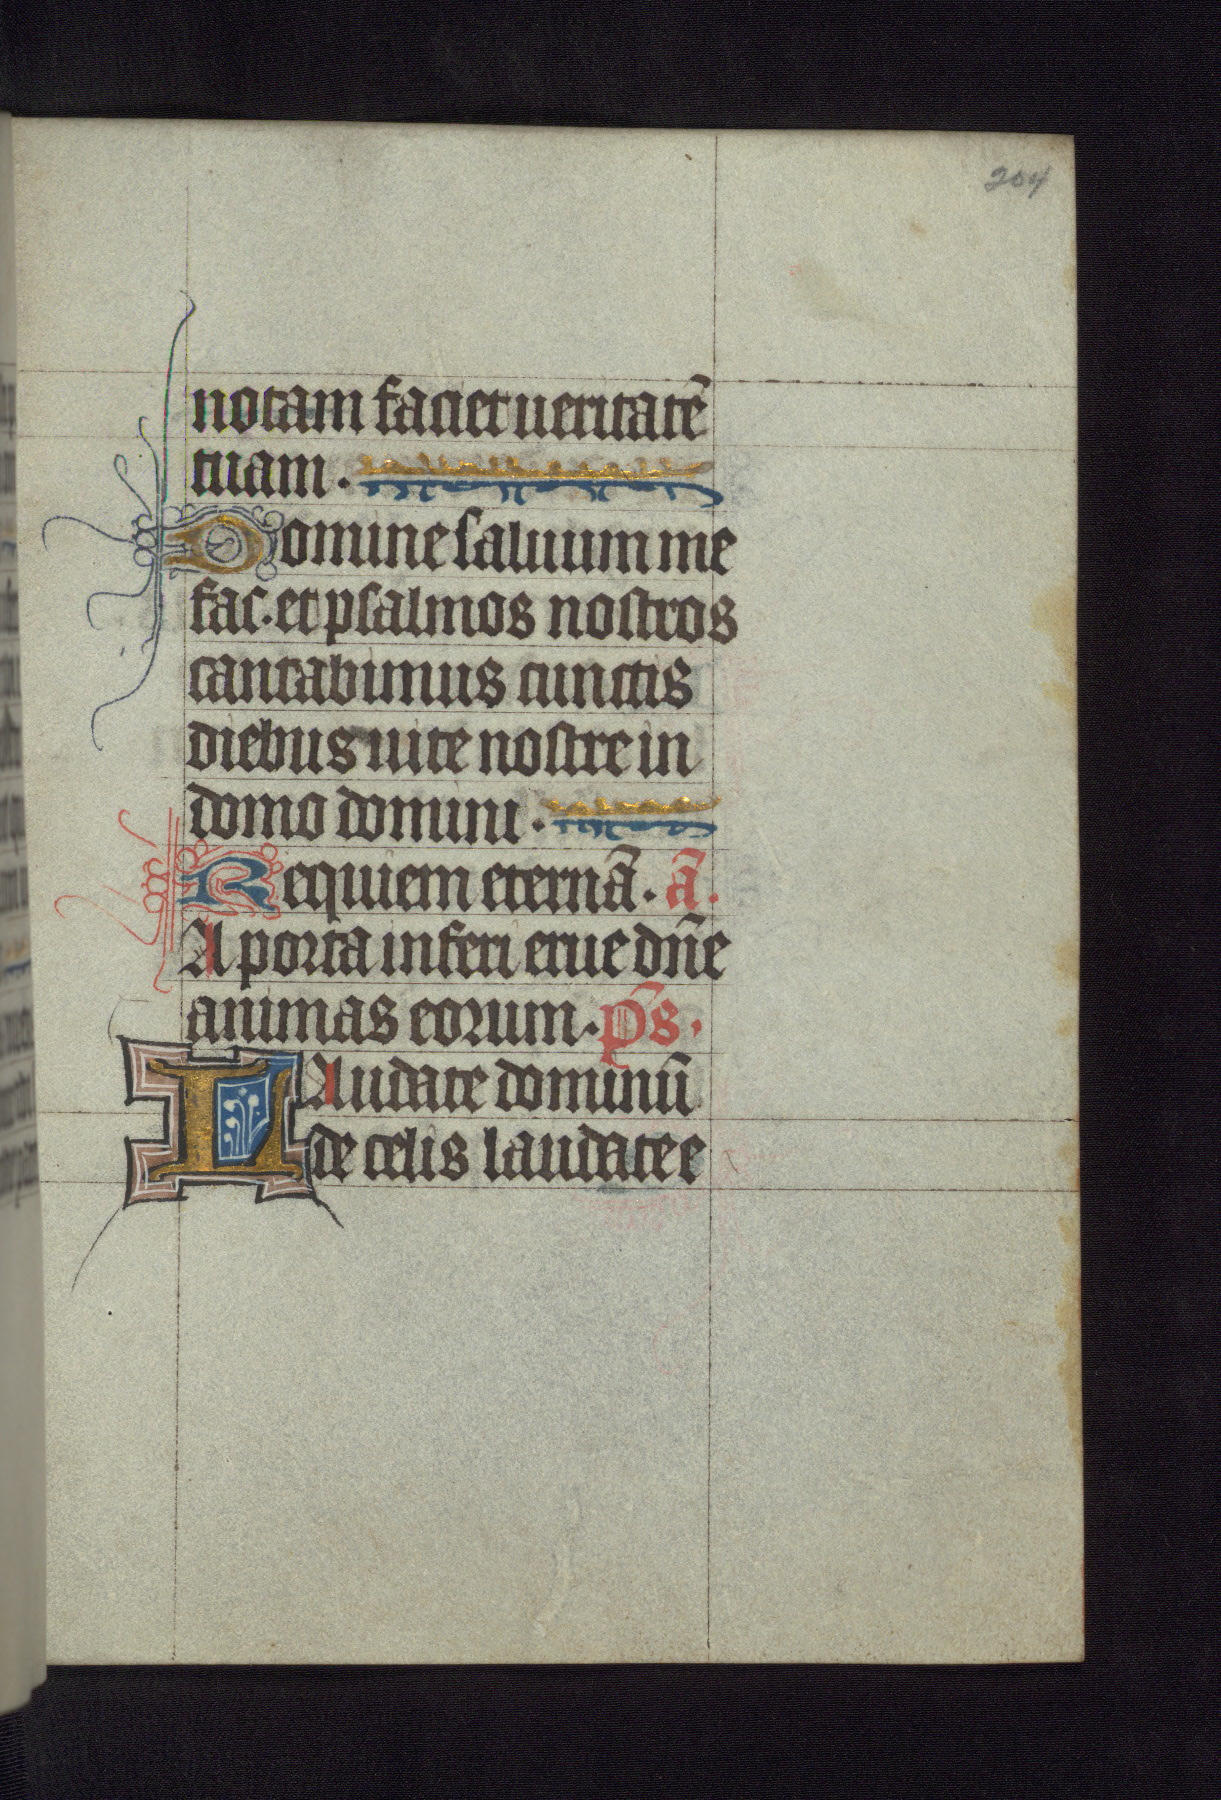 204
notam faciet ueritatē
tuam.
Domine saluum me
fac. et psalmos nostros
cantabimus cunctis
diebus uite nostre in
domo domini.
Requiem eternā. ā.
A porta inferi erue dn̄e
animas eorum. p̄s.
Laudate dominū
de celis laudate e